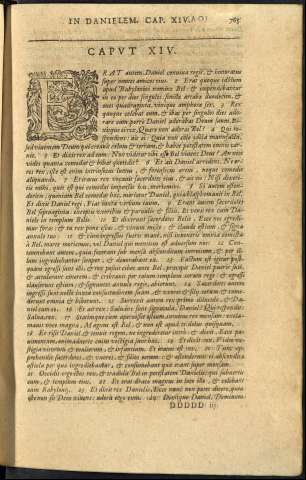 IN DANIELEM, CAP. XIV.
765
CAPVT XIV.
ERAT autem Daniel conuiua regis, & honoratus
super omnes amicos eius. 2 Erat quoque idolum
apud Babylonios nomine Bel: & impendebantur
in eo per dies singulos similæ artabæ duodecim, &
oues quadraginta, vinique amphoræ sex. 3 Rex
quoque colebat eum, & ibat per singulos dies
adorare eum: porro Daniel adorabat Deum suum. Di-
xitque ei rex: Quare non adoras Bel? 4 Qui re-
spondens ait ei: Quia non colo idola manufacta,
sed viuentem Deum qui creauit cœlum & terram, & habet potestatem omnis car-
nis. 5 Et dixit rex ad eum: Non videtur tibi esse Bel viuens Deus? An non
vides quanta comedat & bibat quotidie? 6 Et ait Daniel arridens: Ne er-
res rex, iste est enim intrinsecus luteus, & forinsecus æreus, neque comedit
aliquando. 7 Et iratus rex vocauit sacerdotes eius, & ait eis: Nisi dixeri-
tis mihi, quis est qui comedat impensas has, moriemini. 8 Si autem osten-
deritis, quoniam Bel comedat hæc, morietur Daniel, quia blasphemauit in Bel.
Et dixit Daniel regi: Fiat iuxta verbum tuum. 9 Erant autem sacerdotes
Bel septuaginta, exceptis vxoribus & paruulis & filiis. Et venit rex cum Da-
niele in templum Bel. 10 Et dixerunt sacerdotes Bel: Ecce nos egredi-
mur foras: & tu rex pone escas, & vinum misce: & claude ostium, & signa
annulo tuo. 11 & cum ingressus fueris mane, nisi inueneris omnia comesta
à Bel, morte moriemur, vel Daniel qui mentitus est aduersum nos. 12 Con-
temnebant autem, quia fecerant sub mensa absconditum introitum, & per il-
lum ingrediebantur semper, & deuorabant ea. 13 Factum est igitur post-
quam egressi sunt illi, & rex posuit cibos ante Bel, præcepit Daniel pueris suis,
& attulerunt cinerem, & cribrauit per totum templum coram rege: & egressi
clauserunt ostium, & signantes annulo regis, abierunt. 14 Sacerdotes autem
ingressi sunt nocte iuxta consuetudinem suam, & vxores & filij eorum, & come-
derunt omnia & biberunt. 15 Surrexit autem rex primo diluculo, & Da-
niel cum eo. 16 Et ait rex: Saluáne sunt signacula, Daniel? Qui respondit:
Salua, rex. 17 Statimque cum aperuisset ostium, intuitus rex mensam, excla-
mauit voce magna, Magnus es Bel, & non est apud te dolus quisquam.
18 Et risit Daniel, & tenuit regem, ne ingrederetur intrò: & dixit, Ecce pa-
uimentum, animaduerte cuius vestigia sint hæc. 19 Et dixit rex, Video ve-
stigia virorum & mulierum, & infantium. Et iratus est rex. 20 Tunc ap-
prehendit sacerdotes, & vxores, & filios eorum: & ostenderunt ei abscondita
ostiola per quæ ingrediebantur, & consumebant quæ erant super mensam.
21 Occidit ergo illos rex, & tradidit Bel in potestatem Danielis: qui subuertit
eum, & templum eius. 22 Et erat draco magnus in loco illo, & colebant
eum Babylonij. 23 Et dixit rex Danieli, Ecce nunc non potes dicere, quia
iste non sit Deus viuens: adora ergo eum. 24 Dixitque Daniel, Dominum
DDDDD iij